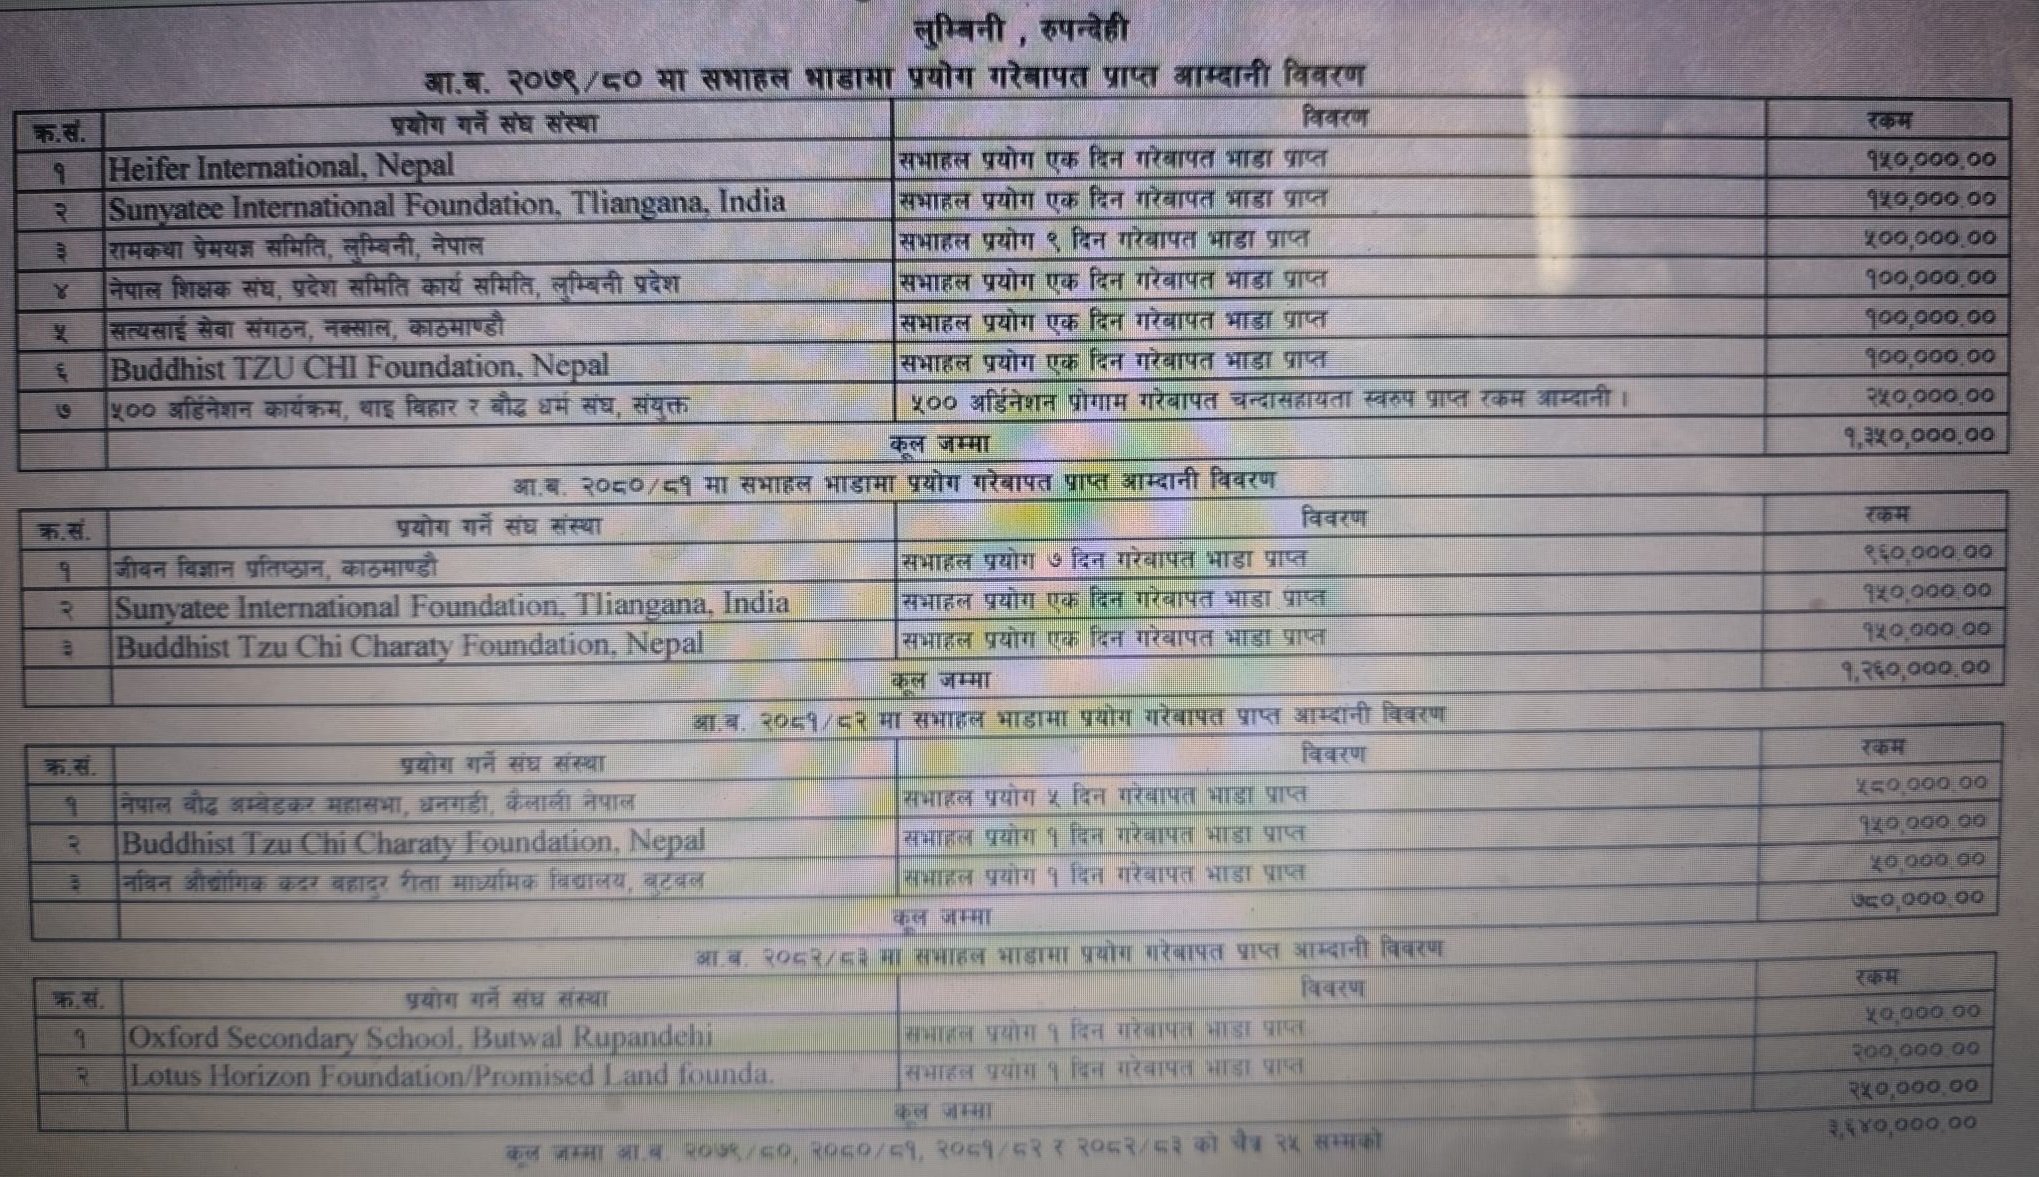 लुम्बिनी , रुपन्देही
आ.ब. २०७९/८० मा सभाहल भाडामा प्रयोग गरेबापत प्राप्त आम्दानी विवरण
क्र.सं. प्रयोग गर्ने संघ संस्था विवरण रकम
१ Heifer International, Nepal सभाहल प्रयोग एक दिन गरेबापत भाडा प्राप्त १५०,०००.००
२ Sunyatee International Foundation, Tliangana, India सभाहल प्रयोग एक दिन गरेबापत भाडा प्राप्त १५०,०००.००
३ रामकथा प्रेमयज्ञ समिति, लुम्बिनी, नेपाल सभाहल प्रयोग ९ दिन गरेबापत भाडा प्राप्त ५००,०००.००
४ नेपाल शिक्षक संघ, प्रदेश समिति कार्य समिति, लुम्बिनी प्रदेश सभाहल प्रयोग एक दिन गरेबापत भाडा प्राप्त १००,०००.००
५ सत्यसाई सेवा संगठन, नक्साल, काठमाण्डौ सभाहल प्रयोग एक दिन गरेबापत भाडा प्राप्त १००,०००.००
६ Buddhist TZU CHI Foundation, Nepal सभाहल प्रयोग एक दिन गरेबापत भाडा प्राप्त १००,०००.००
७ ५०० अर्डिनेशन कार्यक्रम, थाइ विहार र बौद्ध धर्म संघ, संयुक्त ५०० अर्डिनेशन प्रोगाम गरेबापत चन्दासहायता स्वरुप प्राप्त रकम आम्दानी । २५०,०००.००
कूल जम्मा १,३५०,०००.००
आ.ब. २०८०/८१ मा सभाहल भाडामा प्रयोग गरेबापत प्राप्त आम्दानी विवरण
क्र.सं. प्रयोग गर्ने संघ संस्था विवरण रकम
१ जीवन विज्ञान प्रतिष्ठान, काठमाण्डौ सभाहल प्रयोग ७ दिन गरेबापत भाडा प्राप्त ९६०,०००.००
२ Sunyatee International Foundation, Tliangana, India सभाहल प्रयोग एक दिन गरेबापत भाडा प्राप्त १५०,०००.००
३ Buddhist Tzu Chi Charaty Foundation, Nepal सभाहल प्रयोग एक दिन गरेबापत भाडा प्राप्त १५०,०००.००
कूल जम्मा १,२६०,०००.००
आ.ब. २०८१/८२ मा सभाहल भाडामा प्रयोग गरेबापत प्राप्त आम्दानी विवरण
क्र.सं. प्रयोग गर्ने संघ संस्था विवरण रकम
१ नेपाल बौद्ध अम्बेडकर महासभा, धनगडी, कैलाली नेपाल सभाहल प्रयोग ५ दिन गरेबापत भाडा प्राप्त ५८०,०००.००
२ Buddhist Tzu Chi Charaty Foundation, Nepal सभाहल प्रयोग १ दिन गरेबापत भाडा प्राप्त १५०,०००.००
३ नविन औद्योगिक कदर बहादुर रीता माध्यमिक विद्यालय, बुटवल सभाहल प्रयोग १ दिन गरेबापत भाडा प्राप्त ५०,०००.००
कूल जम्मा ७८०,०००.००
आ.ब. २०८२/८३ मा सभाहल भाडामा प्रयोग गरेबापत प्राप्त आम्दानी विवरण
क्र.सं. प्रयोग गर्ने संघ संस्था विवरण रकम
१ Oxford Secondary School, Butwal Rupandehi सभाहल प्रयोग १ दिन गरेबापत भाडा प्राप्त ५०,०००.००
२ Lotus Horizon Foundation/Promised Land founda. सभाहल प्रयोग १ दिन गरेबापत भाडा प्राप्त २००,०००.००
कूल जम्मा २५०,०००.००
कूल जम्मा आ.ब. २०७९/८०, २०८०/८१, २०८१/८२ र २०८२/८३ को चैत्र २५ सम्मको ३,६४०,०००.००